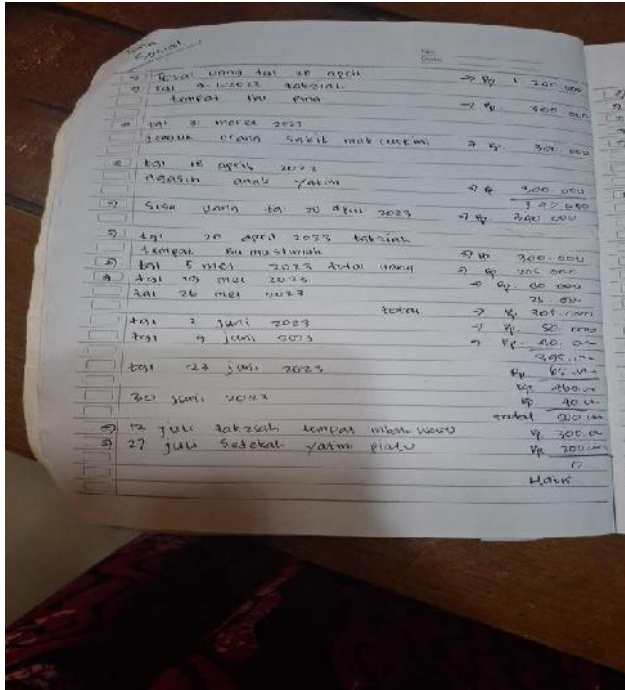 Dana Sosial
No.
Date
Total uang tgl 26 april → Rp 1.240.000
tgl 9-1-2023 takziah
tempat ibu → Rp 300.000
tgl 2023
jenguk orang sakit mak → Rp. 300.000
tgl 18 april 2023
ngasih anak yatim → Rp 300.000
340.000
Sisa uang tgl 20 april 2023 → Rp. 340.000
tgl 20 april 2023 takziah
tempat Bu muslimah → Rp 300.000
tgl 5 mei 2023 total uang → Rp. 205.000
tgl 19 mei 2023 → Rp. 60.000
tgl 26 mei 2023 25.000
total → Rp.
tgl 2 juni 2023 → Rp. 50.000
tgl 9 juni 2023 → Rp.
395.000
tgl 23 juni 2023 Rp. 65.000
Rp 460.000
30 juni 2023 Rp 40.000
total 500.000
13 juli takziah tempat mbah Rp. 300.000
27 juli Sedekah yatim piatu Rp. 200.000
0
Habis